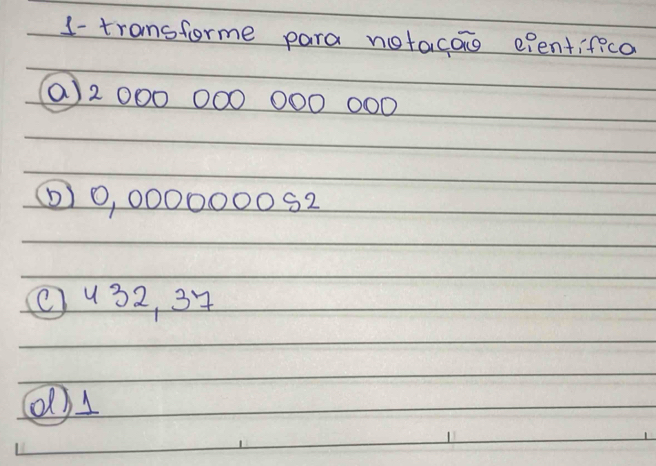 1- transforme para notação científica
a) 2 000 000 000 000
b) 0,0000000052
c) 432,37
d) 1